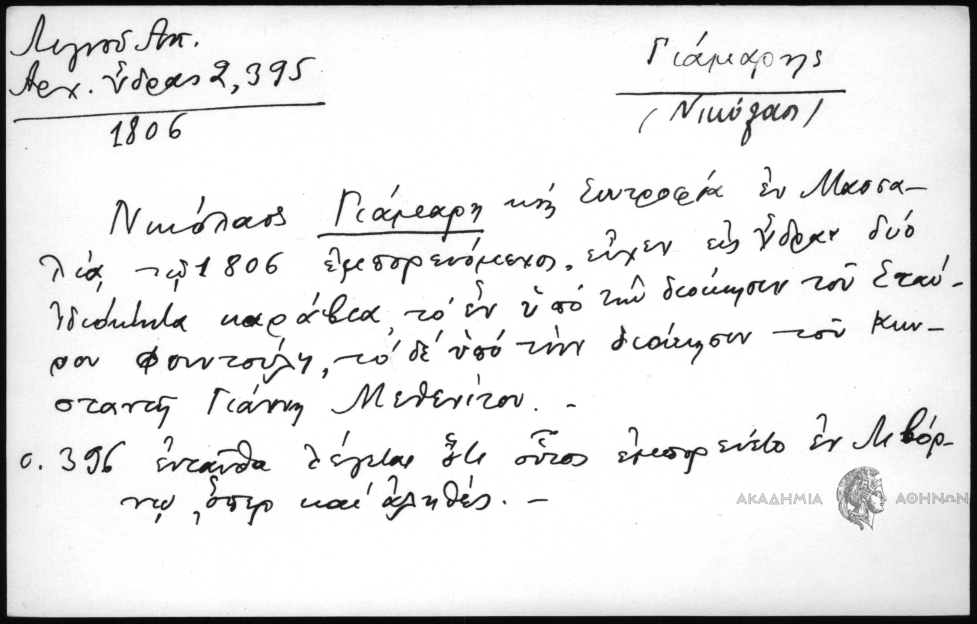 Λιγνοῦ Ἀντ.
Ἀρχ. Ὕδρας 2, 395
1806
Γιάμαρης
(Νικόλαος)
Νικόλαος Γιάμαρη καὶ Συντροφία ἐν Μασσα-
λίᾳ τῷ 1806 ἐμπορευόμενος, εἶχεν εἰς Ὕδραν δύο
ἰδιόκτητα καράβια, τὸ ἓν ὑπὸ τὴν διοίκησιν τοῦ Σταύ-
ρου Φουντούλη, τὸ δὲ ὑπὸ τὴν διοίκησιν τοῦ Κων-
σταντῆ Γιάννη Μεθενίτου. -
σ. 396 ἐνταῦθα λέγεται ὅτι οὗτος ἐμπορεύετο ἐν Λιβόρ-
νῳ, ὅπερ καὶ ἀληθές. -
ΑΚΑΔΗΜΙΑ ΑΘΗΝΩΝ